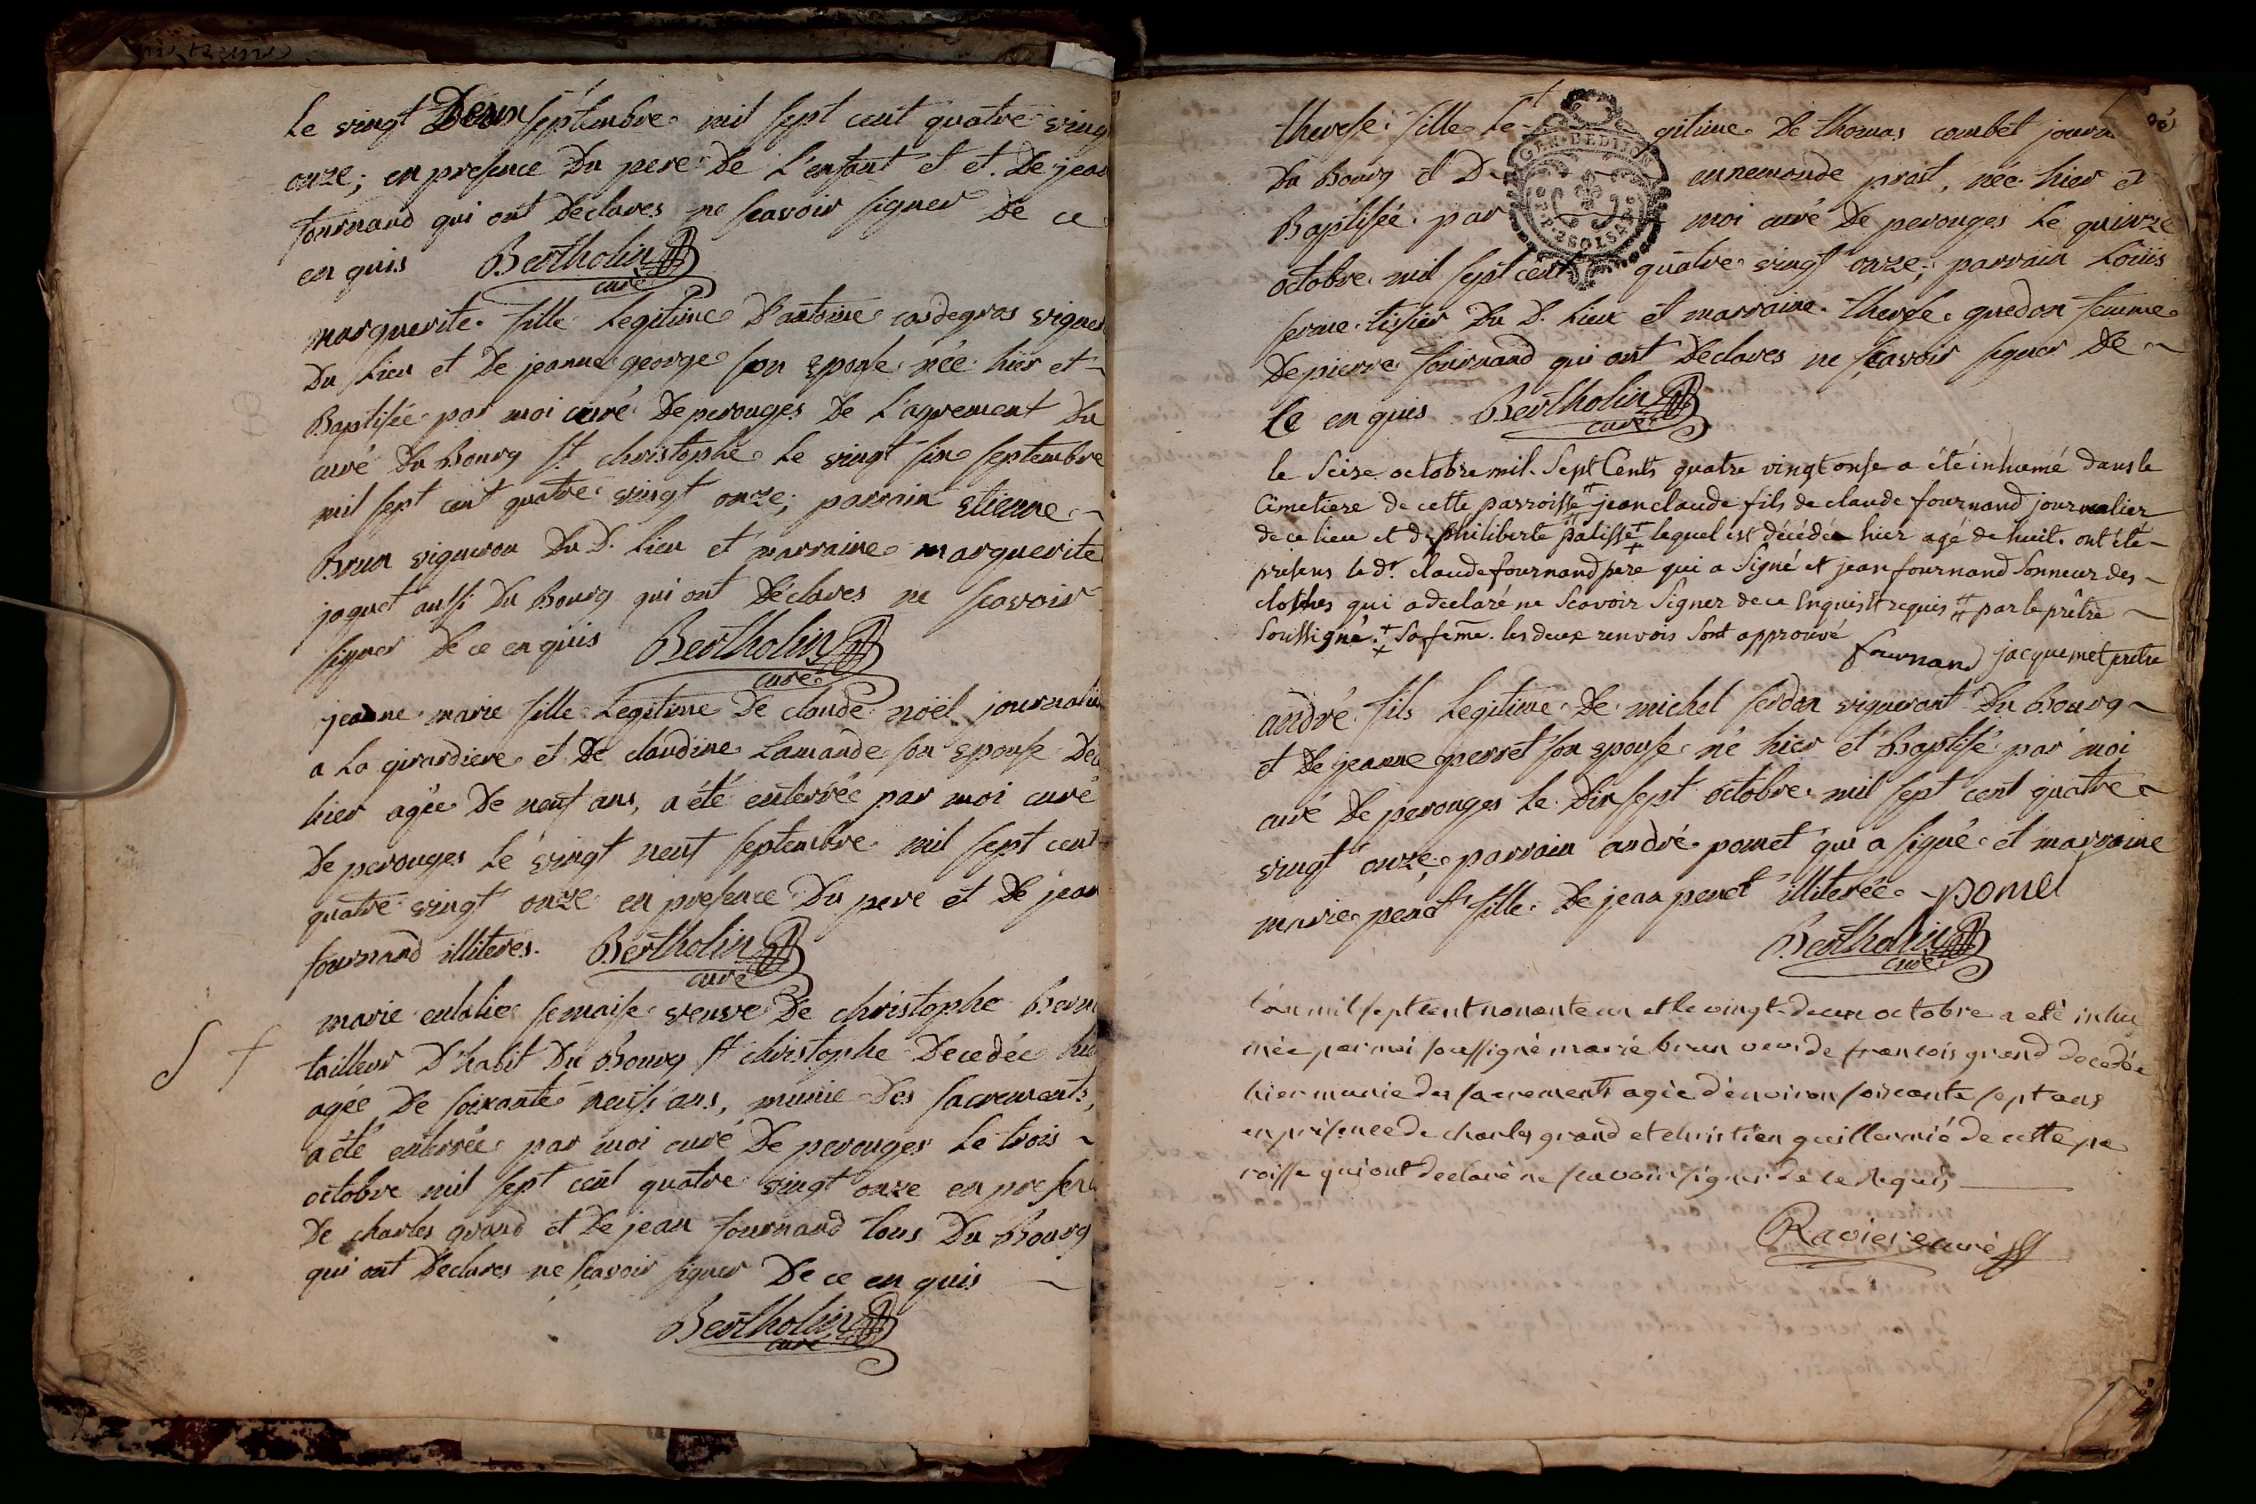 Le vingt Deux septembre mil sept cent quatre ving
onze; en presence Du pere De L'enfant et et. De jean
fournand qui ont Declares ne scavoir signer De ce
en quis Bertholin
curé
marguerite fille Legitime D'antoine cardegros vigner
Du Lieu et De jeanne george son epouse née hier et
Baptisée par moi curé De perouges De L'agrement Du
curé Du Bourg St christophe Le vingt six septembre
mil sept cent quatre vingt onze; parrain etienne
Brun vigneron Du D. Lieu et marraine marguerite
joquet aussi Du Bourg qui ont Déclares ne scavoir
signer De ce en quis Bertholin
curé
jeanne marie fille Legitime De claude noël journalie
a La girardiere et De claudine Lamande son epouse Dec
hier agée De neuf ans, a été enterrée par moi curé
De perouges Le vingt neuf septembre mil sept cent
quatre vingt onze en presence Du pere et De jean
fournand illiteres. Bertholin
curé
marie eulalie semaise veuve De christophe
tailleur D'habit Du Bourg St christophe Decedée hie
agée De soixante neuf ans, munie Des sacrements,
a été enterrée par moi curé De perouges Le trois
octobre mil sept cent quatre vingt onze en presen
De charles grand et De jean fournand tous Du Bourg
qui ont Déclares ne scavoir signer De ce en quis
Bertholin
curé
therese fille Le gitime De thomas combet journ
Du Bourg et D ennemonde prost, née hier et
Baptisée par moi curé De perouges Le quinze
GEN. DE DIJON
octobre mil sept cent quatre vingt onze; parrain Loüis
ferme tissier Du D. Lieu et marraine therese guedon femme
De pierre fournand qui ont Declares ne scavoir signer De
Ce en quis Bertholin
curé
le Seize octobre mil Sept Cents quatre vingt onse a été inhumé dans le
Cimetiere de cette parroisse jean claude fils de claude fournand journalier
de ce lieu et de philiberte palisse + lequel est décédée hier agé de huit. ont été
présens le dr. claude fournand pere qui a Signé et jean fournand Sonneur des
cloches qui a declaré ne Scavoir Signer de ce Enquis et requis par le prêtre
Soussigné. + Sa feme. les deux renvois Sont approuvé
fournand jacquemet prêtre
andré fils Legitime De michel serdon vigneront Du Bourg
et De jeanne perret son epouse né hier et Baptisé par moi
curé De perouges Le Dix sept octobre mil sept cent quatre
vingt onze, parrain andré pomet qui a signé et marraine
marie penet fille De jean penet illiterée pomet
Bertholin
curé
l'an mil sept cent nonante un et le vingt-deux octobre a eté inhu
mée par moi soussigné marie brun veuve de francois grand decedée
hier munie des sacrements agée d'environ soixante sept ans
en présence de charles grand et christien guillermié de cette pa
roisse qui ont declaré ne scavoir signer de ce requis
Raviere curé